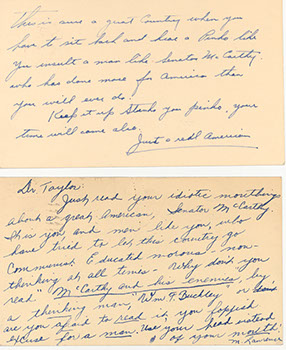 This is sure a great Country when you
have to sit back and hear a Pinko like
you insult a man like Senator McCarthy.
who has done more for America than
you will ever do!
Keep it up Stanko you pinko, your
time will come also.
Just a real American
Dr. Taylor:
Just read your idiotic mouthing
about a great American, Senator McCarthy.
It is you and men like you, who
have tried to let this country go
Communist. Educated morons - non-
thinking at all times. Why don't you
read "McCarthy and his enemies" by
a thinking man, "Wm F. Buckley" or
are you afraid to read it, you foppish
excuse for a man. Use your head instead
of your mouth!
M. Lawrence